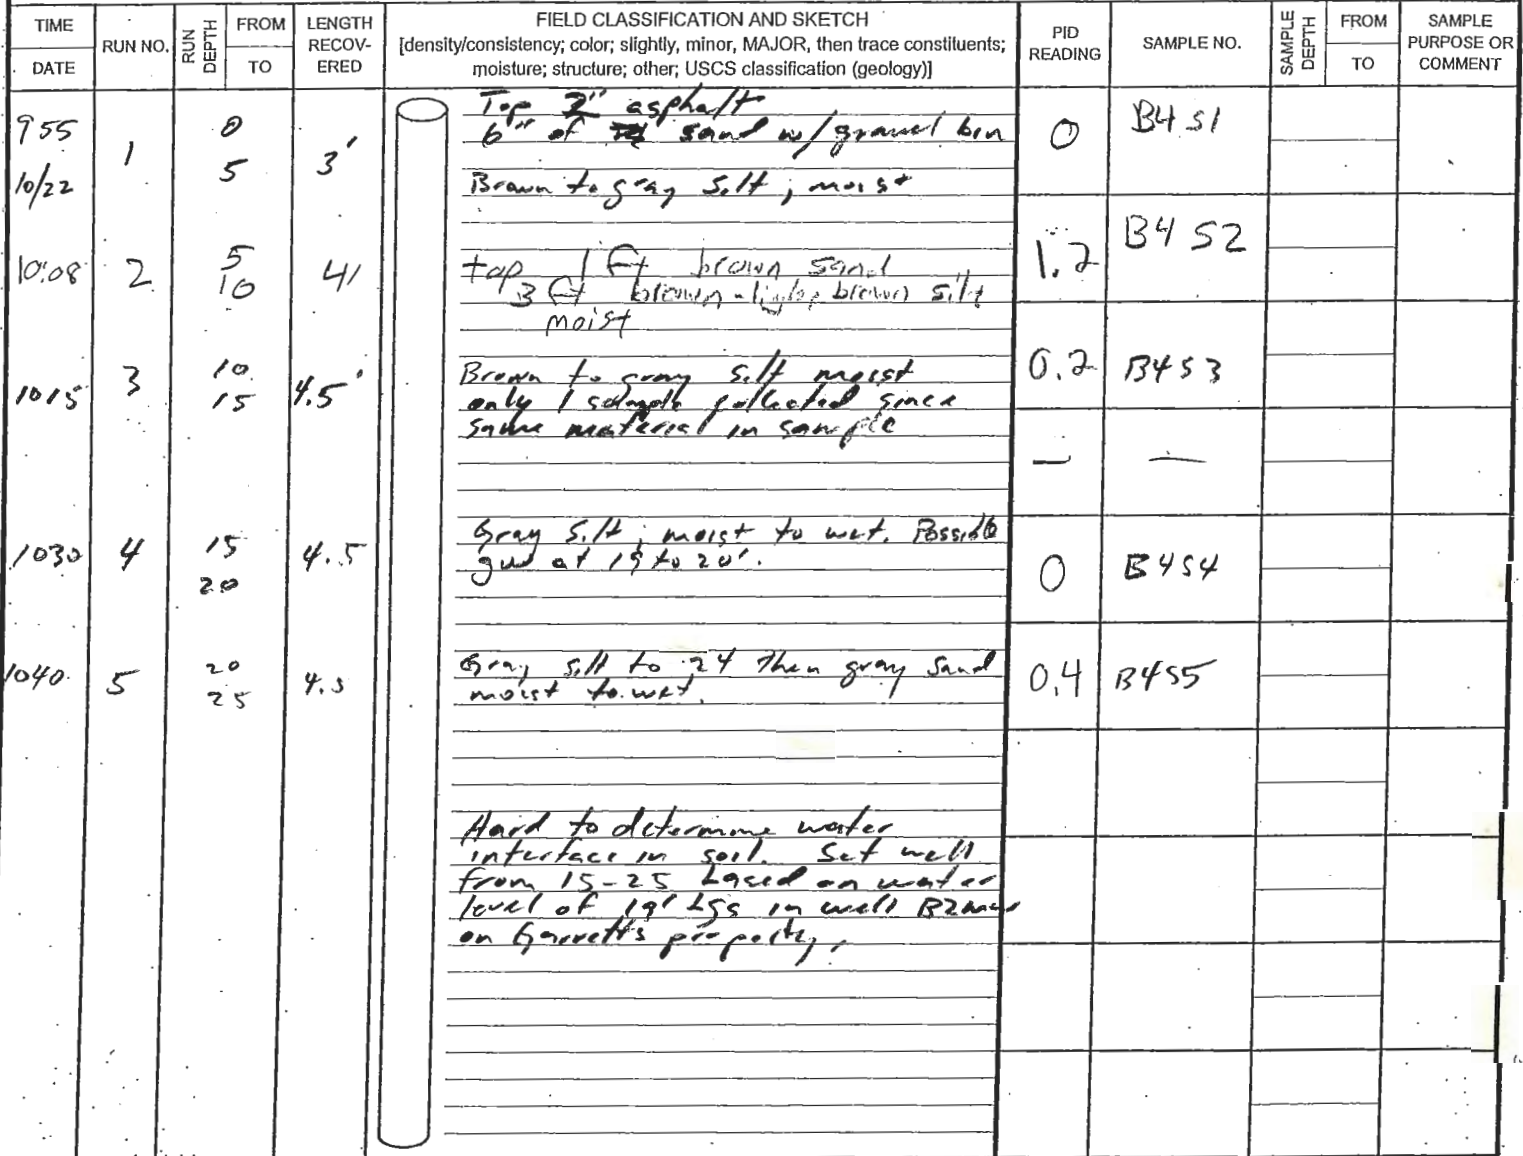 TIME
DATE
RUN NO.
RUN DEPTH
FROM
TO
LENGTH RECOV-ERED
FIELD CLASSIFICATION AND SKETCH
[density/consistency; color; slightly, minor, MAJOR, then trace constituents;
moisture; structure; other; USCS classification (geology)]
PID READING
SAMPLE NO.
SAMPLE DEPTH
FROM
TO
SAMPLE PURPOSE OR COMMENT
955
10/22
1
0
5
3'
Top 2" asphalt
6" of sand w/ gravel
Brown to gray silt; moist
0
B4 S1
10:08
2
5
10
4'
top 1 ft brown sand
3 ft brown-light brown silt
moist
1.2
B4 S2
1015
3
10
15
4.5'
Brown to gray silt moist
only 1 sample collected since
same material in sample
0.2
B4S3
—
—
1030
4
15
20
4.5
Gray silt; moist to wet. Possible
gw at 19 to 20'.
0
B4S4
1040
5
20
25
4.5
Gray silt to 24 then gray sand
moist to wet.
0.4
B4S5
Hard to determine water
interface in soil. Set well
from 15-25 based on water
level of 19' bgs in well B2MW
on Garrett's property.